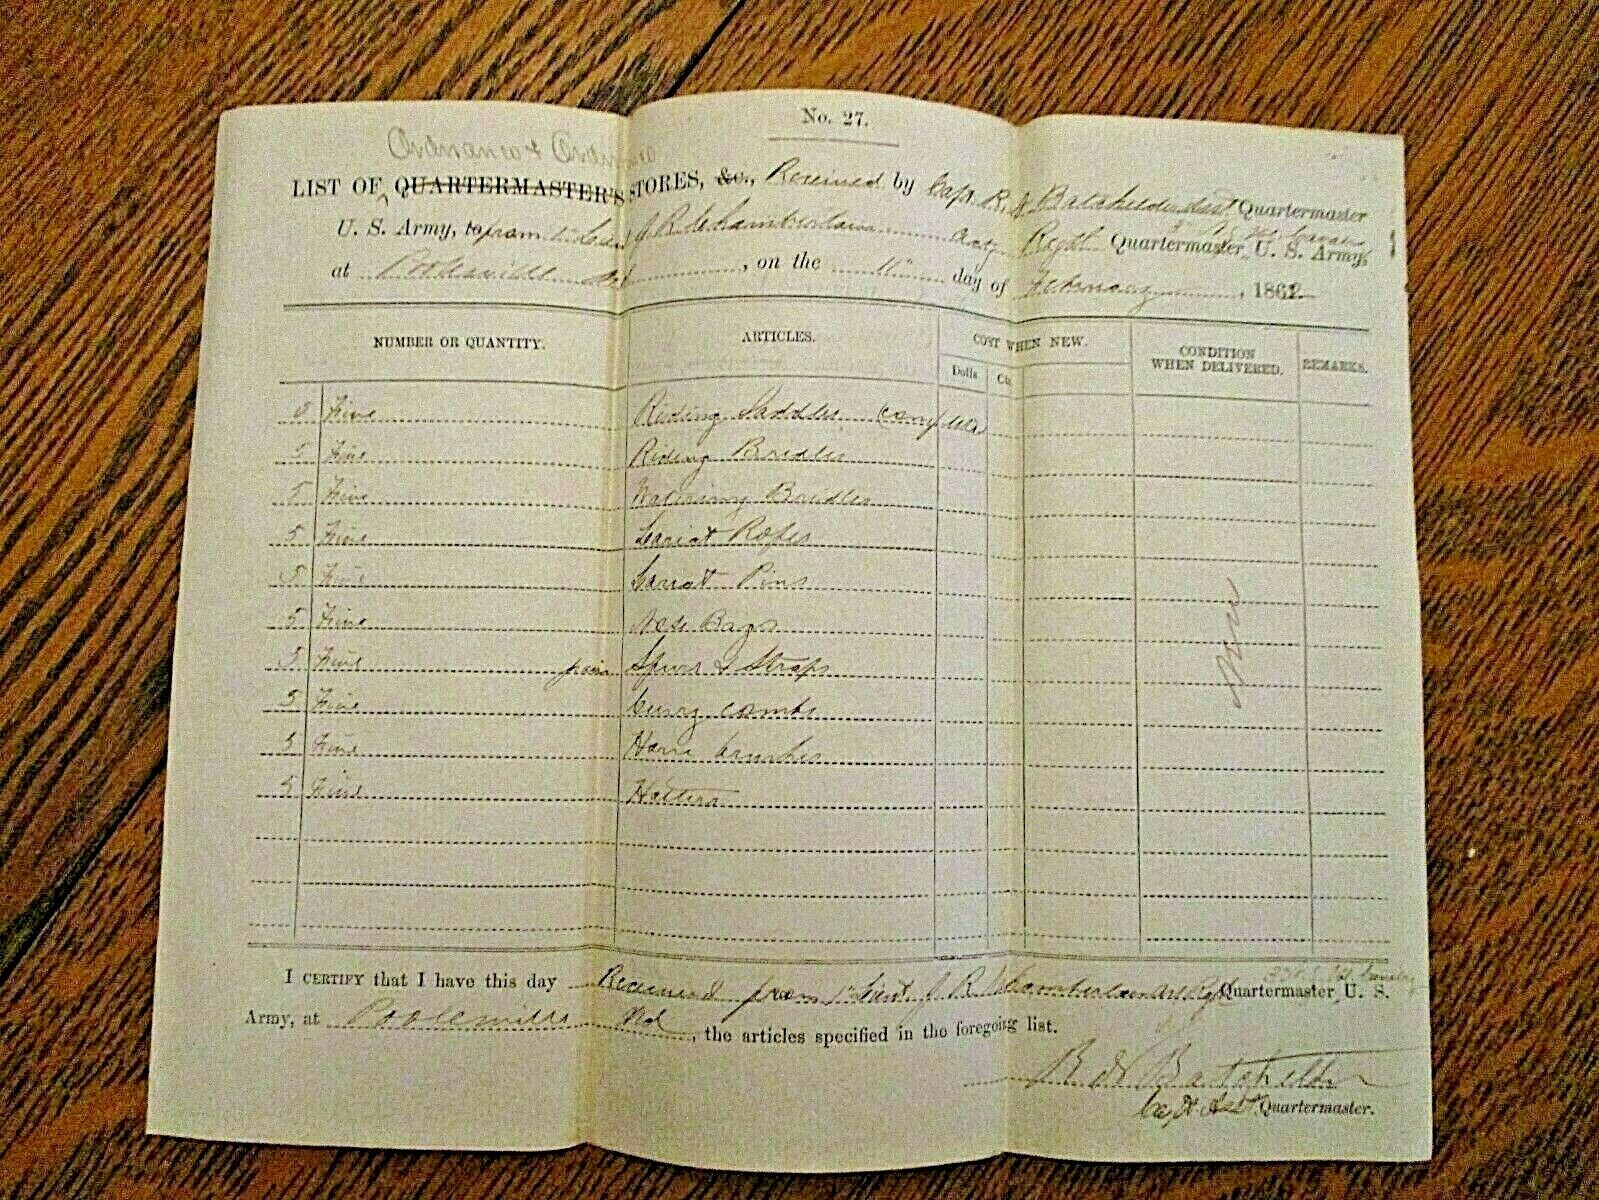 No. 27.
Ordnance & Ordnance
LIST OF QUARTERMASTER'S STORES, &c., Received by Capt. R. N. Batchelder Asst Quartermaster
U. S. Army, to from 1st Lieut J R Chamberlain Actg Regtl Quartermaster, U. S. Army,
at Poolesville Md, on the 11" day of February, 1862
NUMBER OR QUANTITY. ARTICLES. COST WHEN NEW. CONDITION WHEN DELIVERED. REMARKS.
Dolls Cts
5 Five Riding Saddles complete
5 Five Riding Bridles
5 Five Watering Bridles
5 Five Lariat Ropes
5 Five Lariat Pins
5 Five Nose Bags
5 Five pairs Spurs & Straps
5 Five Curry combs
5 Five Horse brushes
5 Five Halters
New
I CERTIFY that I have this day Received from 1st Lieut. J R Chamberlain Quartermaster, U. S.
Army, at Poolesville Md, the articles specified in the foregoing list.
R N Batchelder
Capt & Asst Quartermaster.